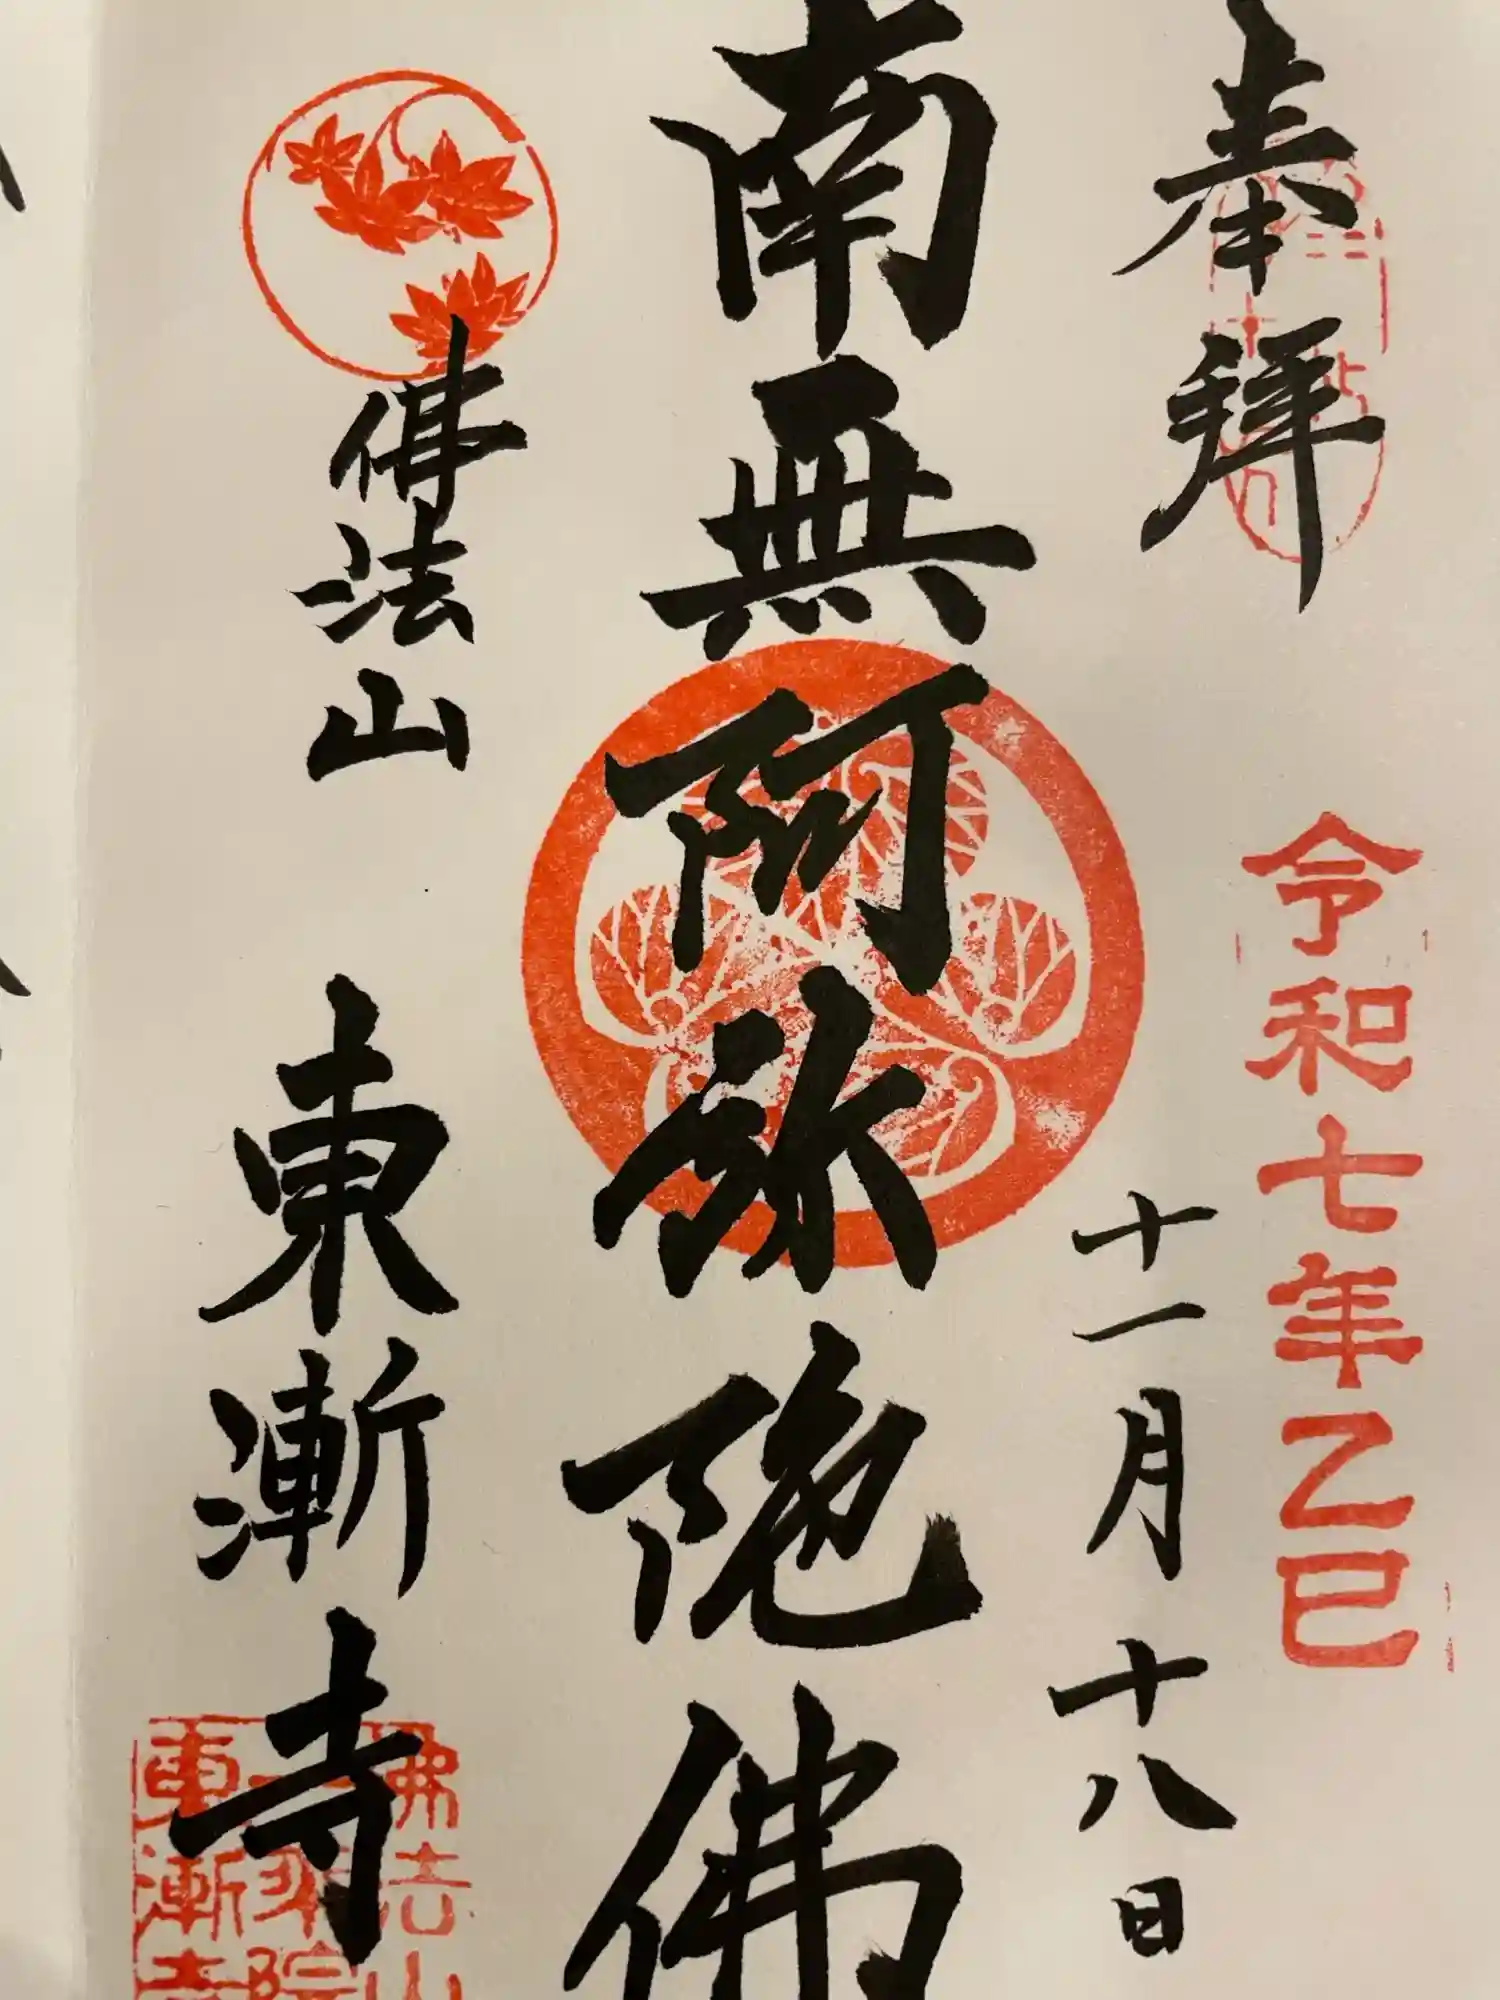 奉拜
令和七年乙巳
十一月十八日
南無阿弥陀佛
佛法山
東漸寺
佛法山
東漸寺